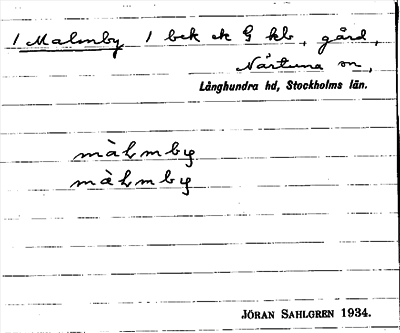 1 Malmby 1 bck ck G kb, gård,
Närtuna sn,
Långhundra hd, Stockholms län.
màlmby
màlmby
JÖRAN SAHLGREN 1934.